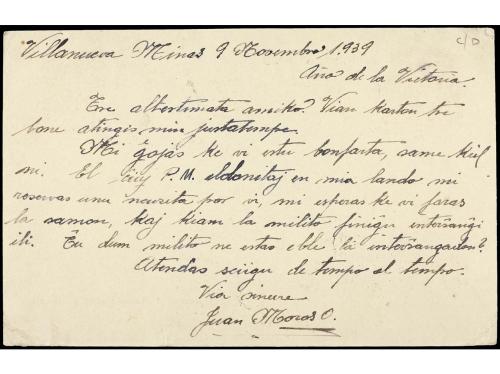 Villanueva Minas 9 Novembro 1.939
c/D
Año de la Victoria.
Tre altestimata amiko: Vian karton tre
bone atingis min justatempe.
Mi ĝojas ke vi estu bonfarta, same kiel
mi. El ĉiuj P.M. eldonitaj en mia lando mi
rezervas unu neuzita por vi, mi esperas ke vi faras
la samon, kaj kiam la milito finiĝu interŝanĝi
ili. Ĉu dum milito ne estas eble la interŝanĝadon?
Atendas sciigu de tempo al tempo.
Via sincere
Juan Moros O.